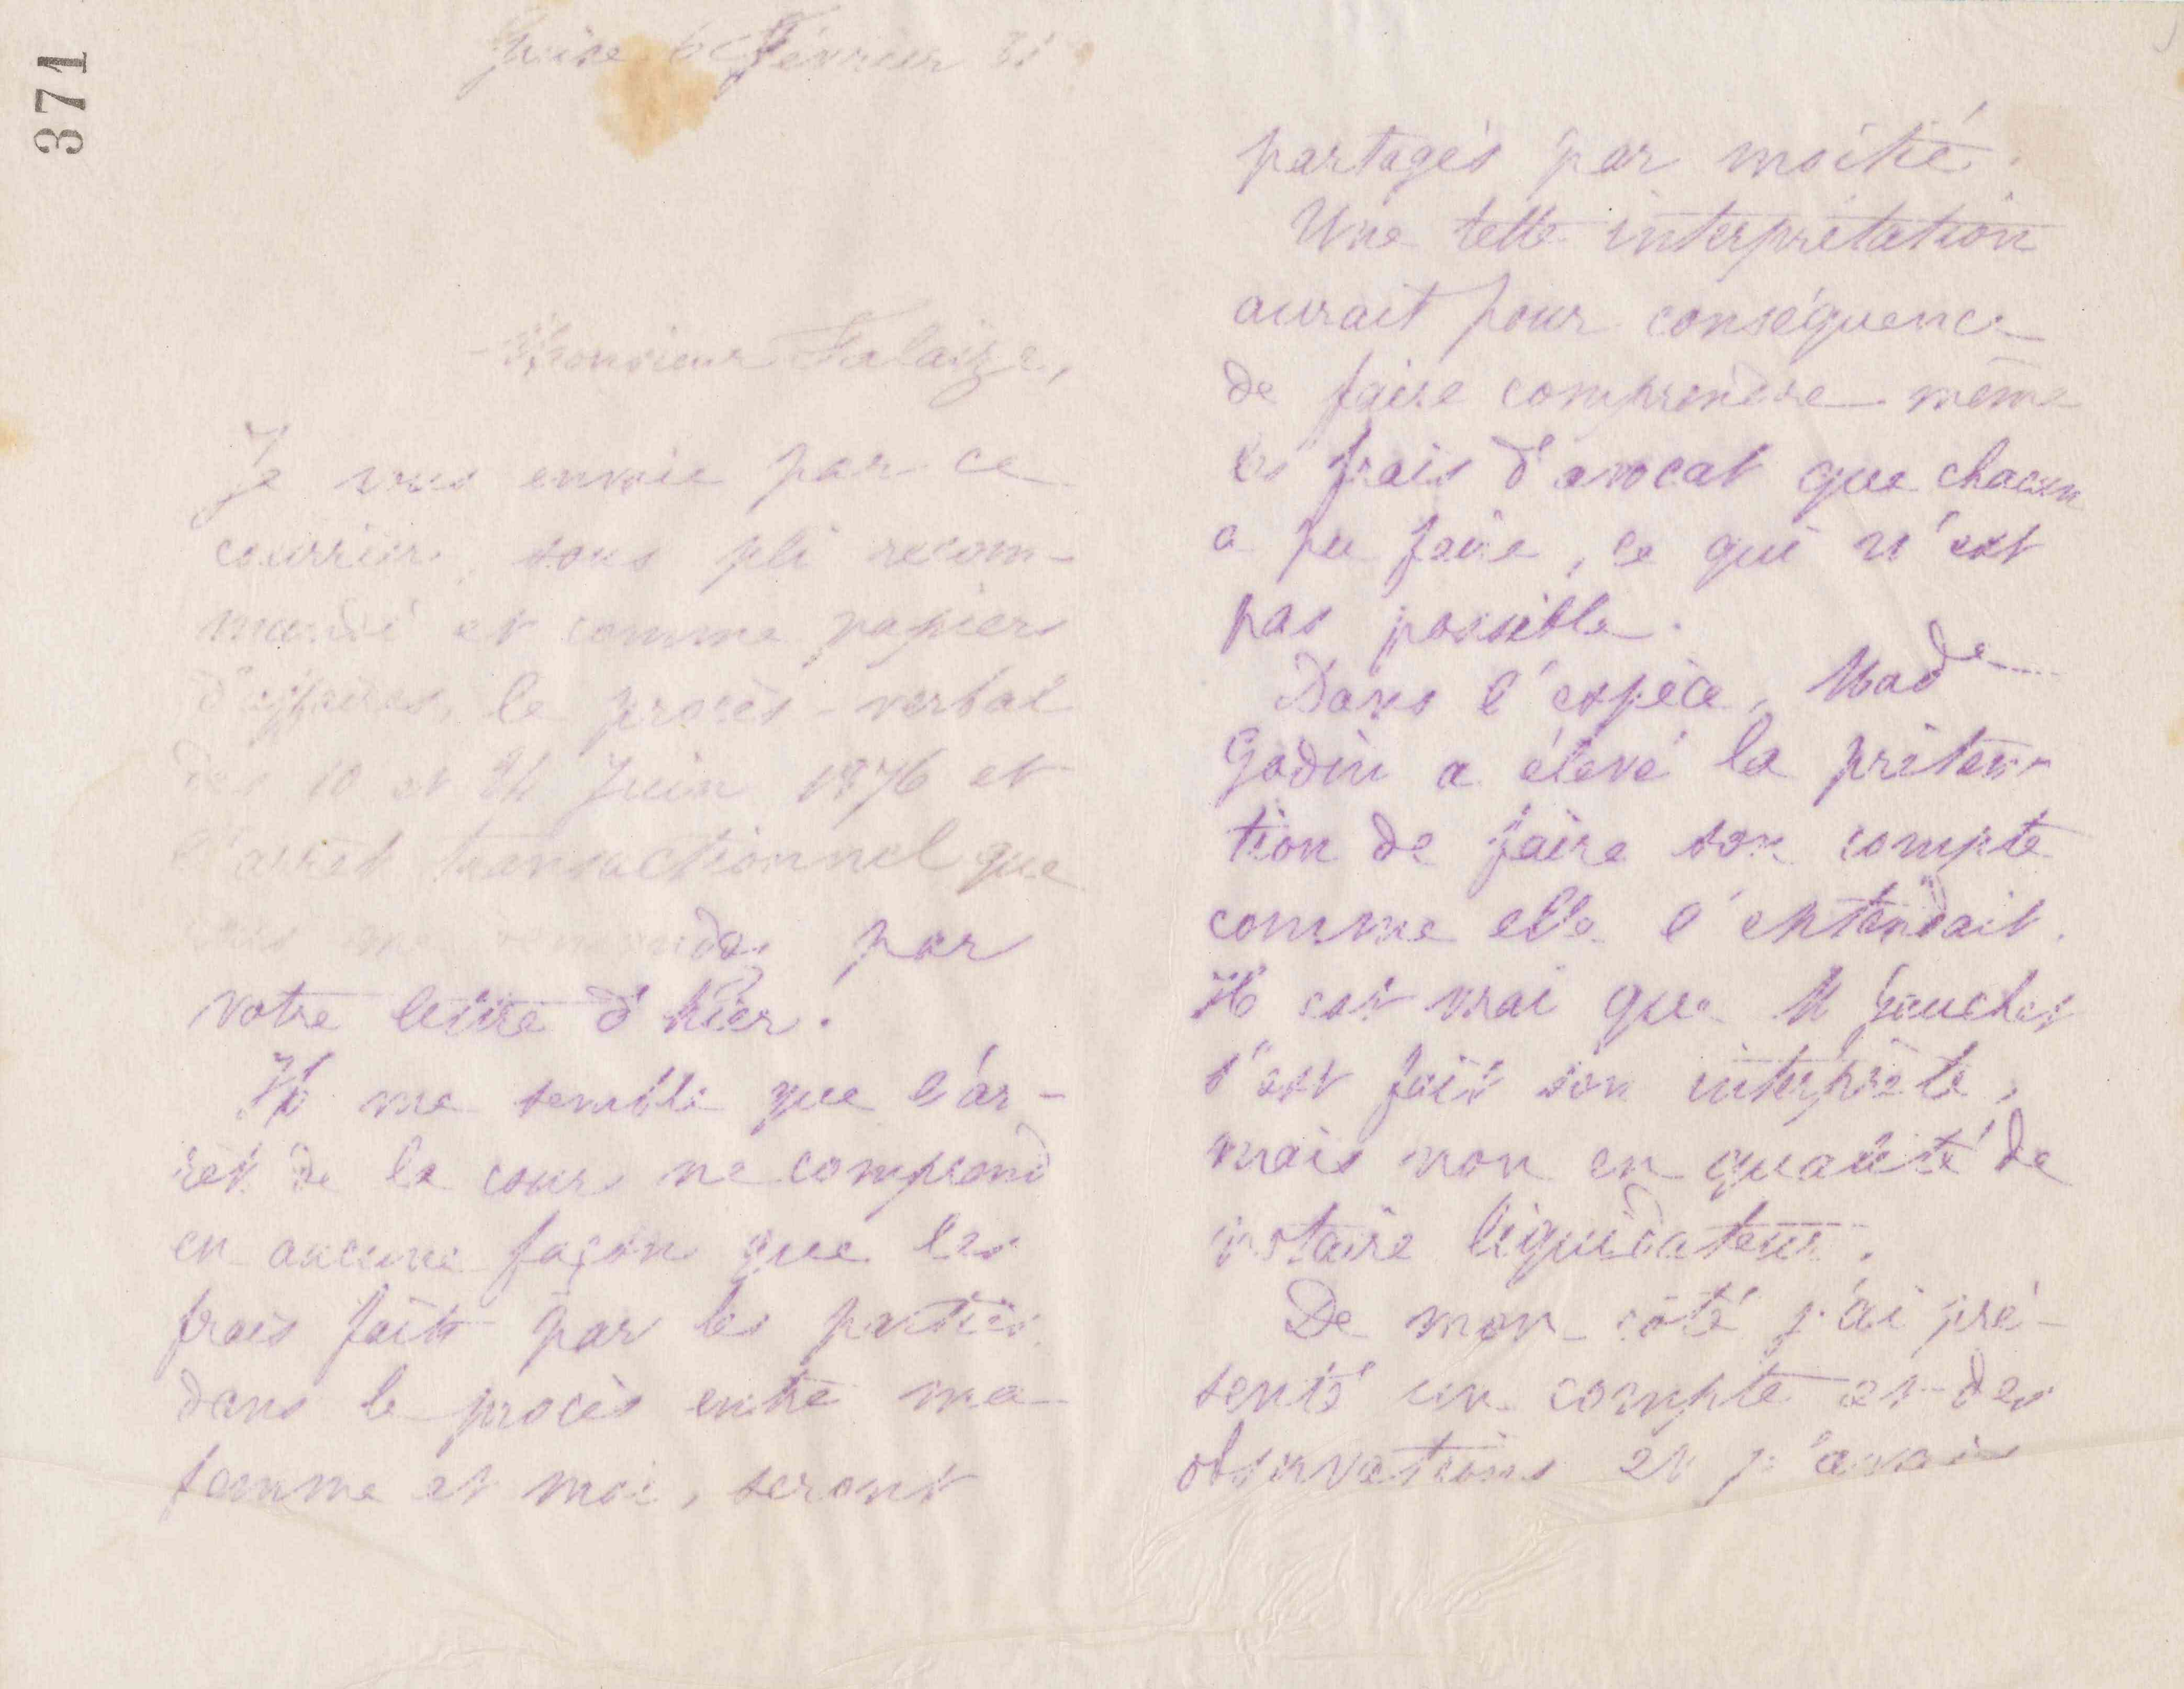 371
Guise 6 Février 81
Monsieur Falaize,
Je vous envoie par ce
courrier, sous pli recom-
mandé et comme papiers
d'affaires, le procès-verbal
des 10 et 24 Juin 1876 et
l'arrêt transactionnel que
vous me demandez par
votre lettre d'hier.
Il me semble que l'ar-
rêt de la cour ne comprend
en aucune façon que les
frais faits par les parties
dans le procès entre ma
femme et moi, seront
partagés par moitié.
Une telle interprétation
aurait pour conséquence
de faire comprendre même
les frais d'avocat que chacun
a pu faire, ce qui n'est
pas possible.
Dans l'espèce, Made
Godin a élevé la préten-
tion de faire son compte
comme elle l'entendait.
Il est vrai que M Gauchet
s'est fait son interprète,
mais non en qualité de
notaire liquidateur.
De mon côté j'ai pré-
senté un compte et des
observations et j'avais